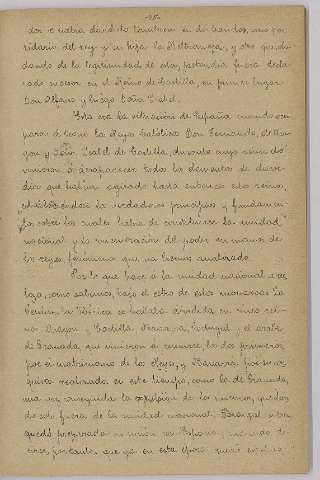 dos é había
también en dos bandos, uno par-
tidario del rey y su hija la Beltraneja, y otro que du-
dando de la legitimidad de esta, pretendía fuera decla-
rado sucesor en el Reino de Castilla, en primer lugar
Don Alfonso y luego Doña Isabel.
Esta era la situación de España cuando ocu-
paron el trono los Reyes Católicos Don Fernando de Ara-
gón y Doña Isabel de Castilla, durante cuyo reinado
vinieron á desaparecer todos los elementos de discor-
dia que habían agitado hasta entonces estos reinos,
los verdaderos principios y fundamen-
tos sobre los cuales había de constituirse la unidad
nacional y la concentración del poder en manos de
los reyes, fenómeno que ya hemos analizado.
Por lo que hace á la unidad nacional
como sabemos, bajo el cetro de estos monarcas. La
Península Ibérica se hallaba dividida en cinco rei-
nos: Aragón y Castilla, Navarra, Portugal y el árabe
de Granada que vinieron á reunirse, los dos primeros
por el matrimonio de los Reyes, y Navarra por su con-
quista realizada en este tiempo, como la de Granada,
una vez conseguida la expulsión de los moros, quedan-
do solo fuera de la unidad nacional Portugal, si bien
quedó preparada su unión con España,
por tanto, que ya en esta época